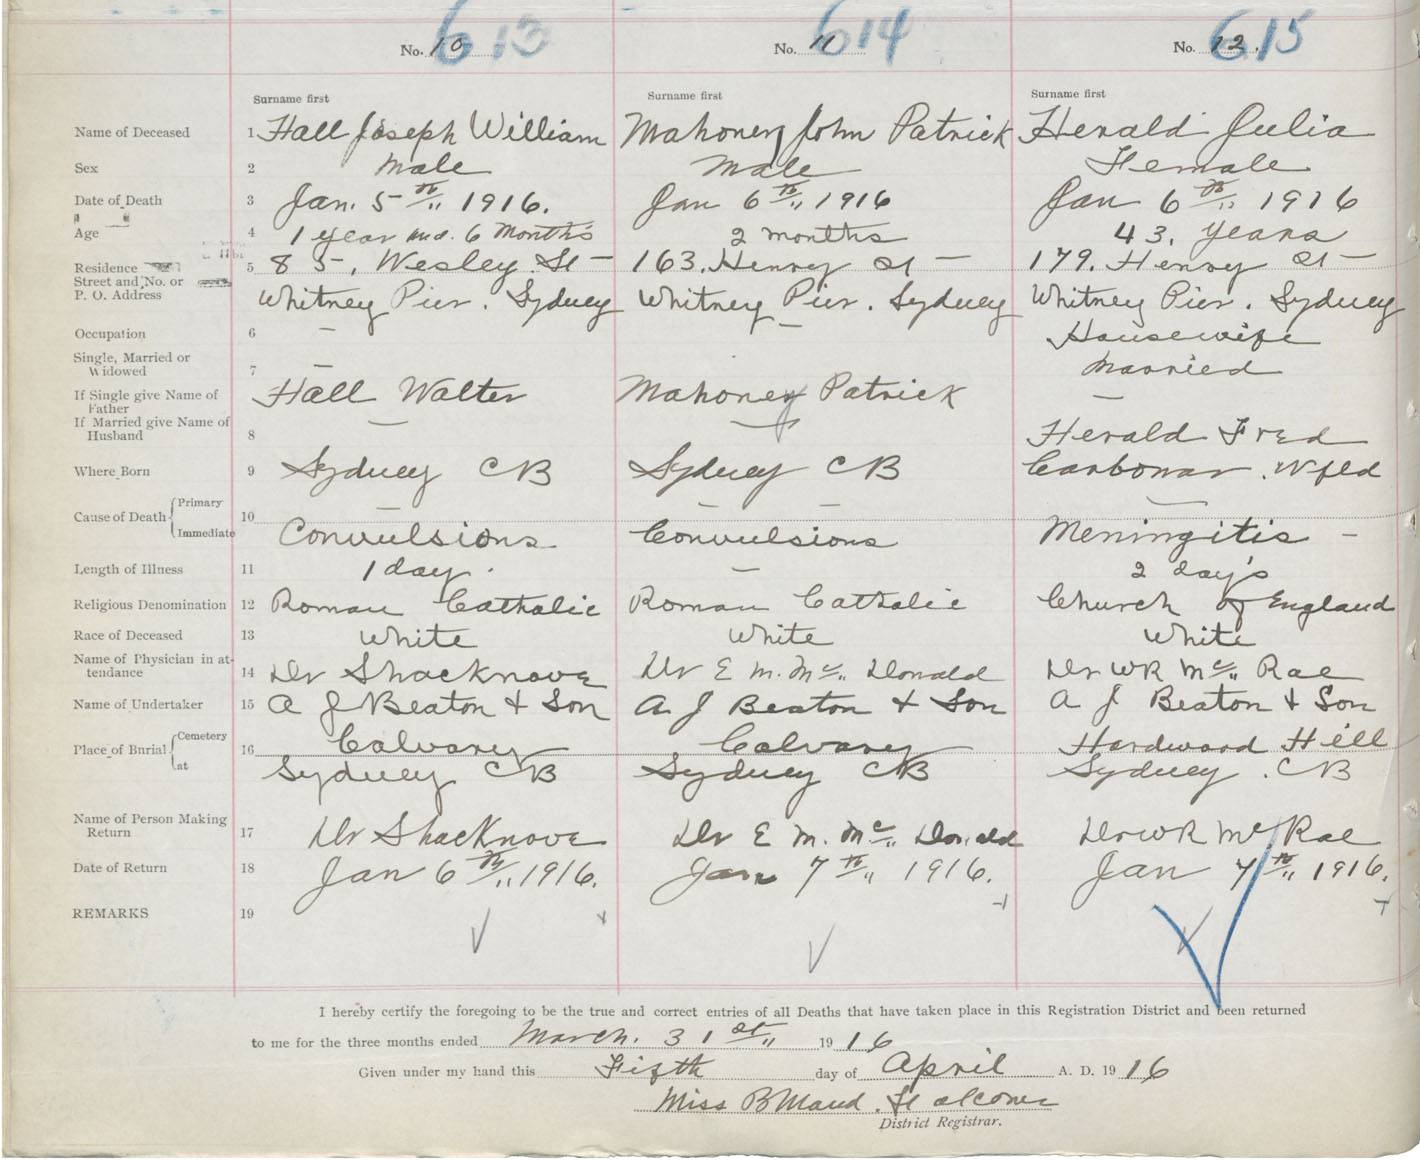 No. 10 613 No. 11 614 No. 12. 615
Surname first Surname first Surname first
Name of Deceased 1 Hall Joseph William Mahoney John Patrick Herald Julia
Sex 2 Male Male Female
Date of Death 3 Jan. 5th 1916. Jan 6th 1916 Jan 6th 1916
Age 4 1 year and 6 Months 2 months 43. years
Residence 5 85. Wesley St — 163. Henry St — 179. Henry St —
Street and No. or
P. O. Address Whitney Pier. Sydney Whitney Pier. Sydney Whitney Pier. Sydney
Occupation 6 — — Housewife
Single, Married or
Widowed 7 — married
If Single give Name of Hall Walter Mahoney Patrick —
Father
If Married give Name of
Husband 8 — — Herald Fred
Where Born 9 Sydney CB Sydney CB Carbonar. Nfld
Cause of Death Primary 10 — — —
Immediate Convulsions Convulsions Meningitis —
Length of Illness 11 1 day. — 2 day's
Religious Denomination 12 Roman Catholic Roman Catholic Church of England
Race of Deceased 13 White White White
Name of Physician in at-
tendance 14 Dr Shacknove Dr E M. Mc Donald Dr WR Mc Rae
Name of Undertaker 15 A J Beaton + Son A. J Beaton + Son A J Beaton + Son
Place of Burial Cemetery 16 Calvary Calvary Hardwood Hill
at Sydney CB Sydney CB Sydney. CB
Name of Person Making
Return 17 Dr Shacknove Dr E M. Mc Donald Dr WR Mc Rae
Date of Return 18 Jan 6th 1916. Jan 7th 1916. Jan 7th 1916.
REMARKS 19
I hereby certify the foregoing to be the true and correct entries of all Deaths that have taken place in this Registration District and been returned
to me for the three months ended March. 31st 1916
Given under my hand this Fifth day of April A. D. 1916
Miss B Maud. Falconer
District Registrar.